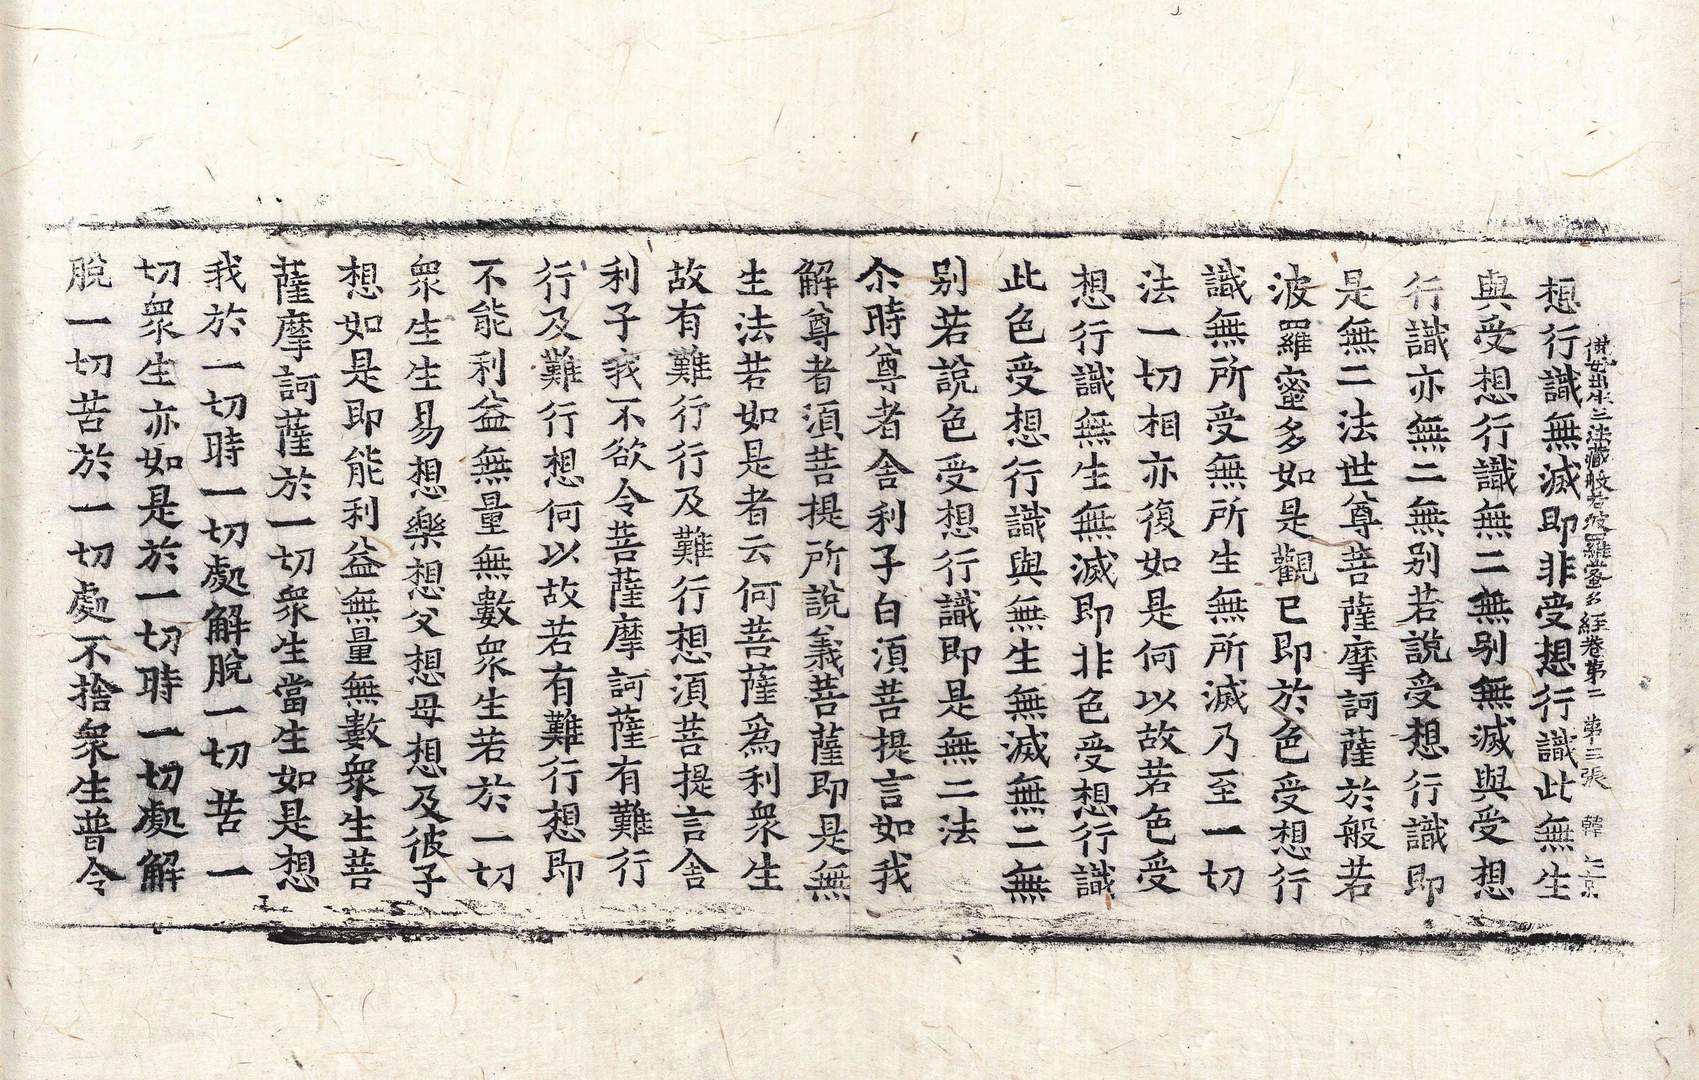 佛母出生三法藏般若波羅蜜多經卷第二 第三張 韓
想行識無滅即非受想行識此無生
與受想行識無二無别無滅與受想
行識亦無二無别若說受想行識即
是無二法世尊菩薩摩訶薩於般若
波羅蜜多如是觀已即於色受想行
識無所受無所生無所滅乃至一切
法一切相亦復如是何以故若色受
想行識無生無滅即非色受想行識
此色受想行識與無生無滅無二無
别若說色受想行識即是無二法
尒時尊者舍利子白湏菩提言如我
解尊者湏菩提所說義菩薩即是無
生法若如是者云何菩薩爲利衆生
故有難行行及難行想湏菩提言舍
利子我不欲令菩薩摩訶薩有難行
行及難行想何以故若有難行想即
不能利益無量無數衆生若於一切
衆生生易想樂想父想母想及彼子
想如是即能利益無量無數衆生菩
薩摩訶薩於一切衆生當生如是想
我於一切時一切處解脫一切苦一
切衆生亦如是於一切時一切處解
脫一切苦於一切處不捨衆生普令